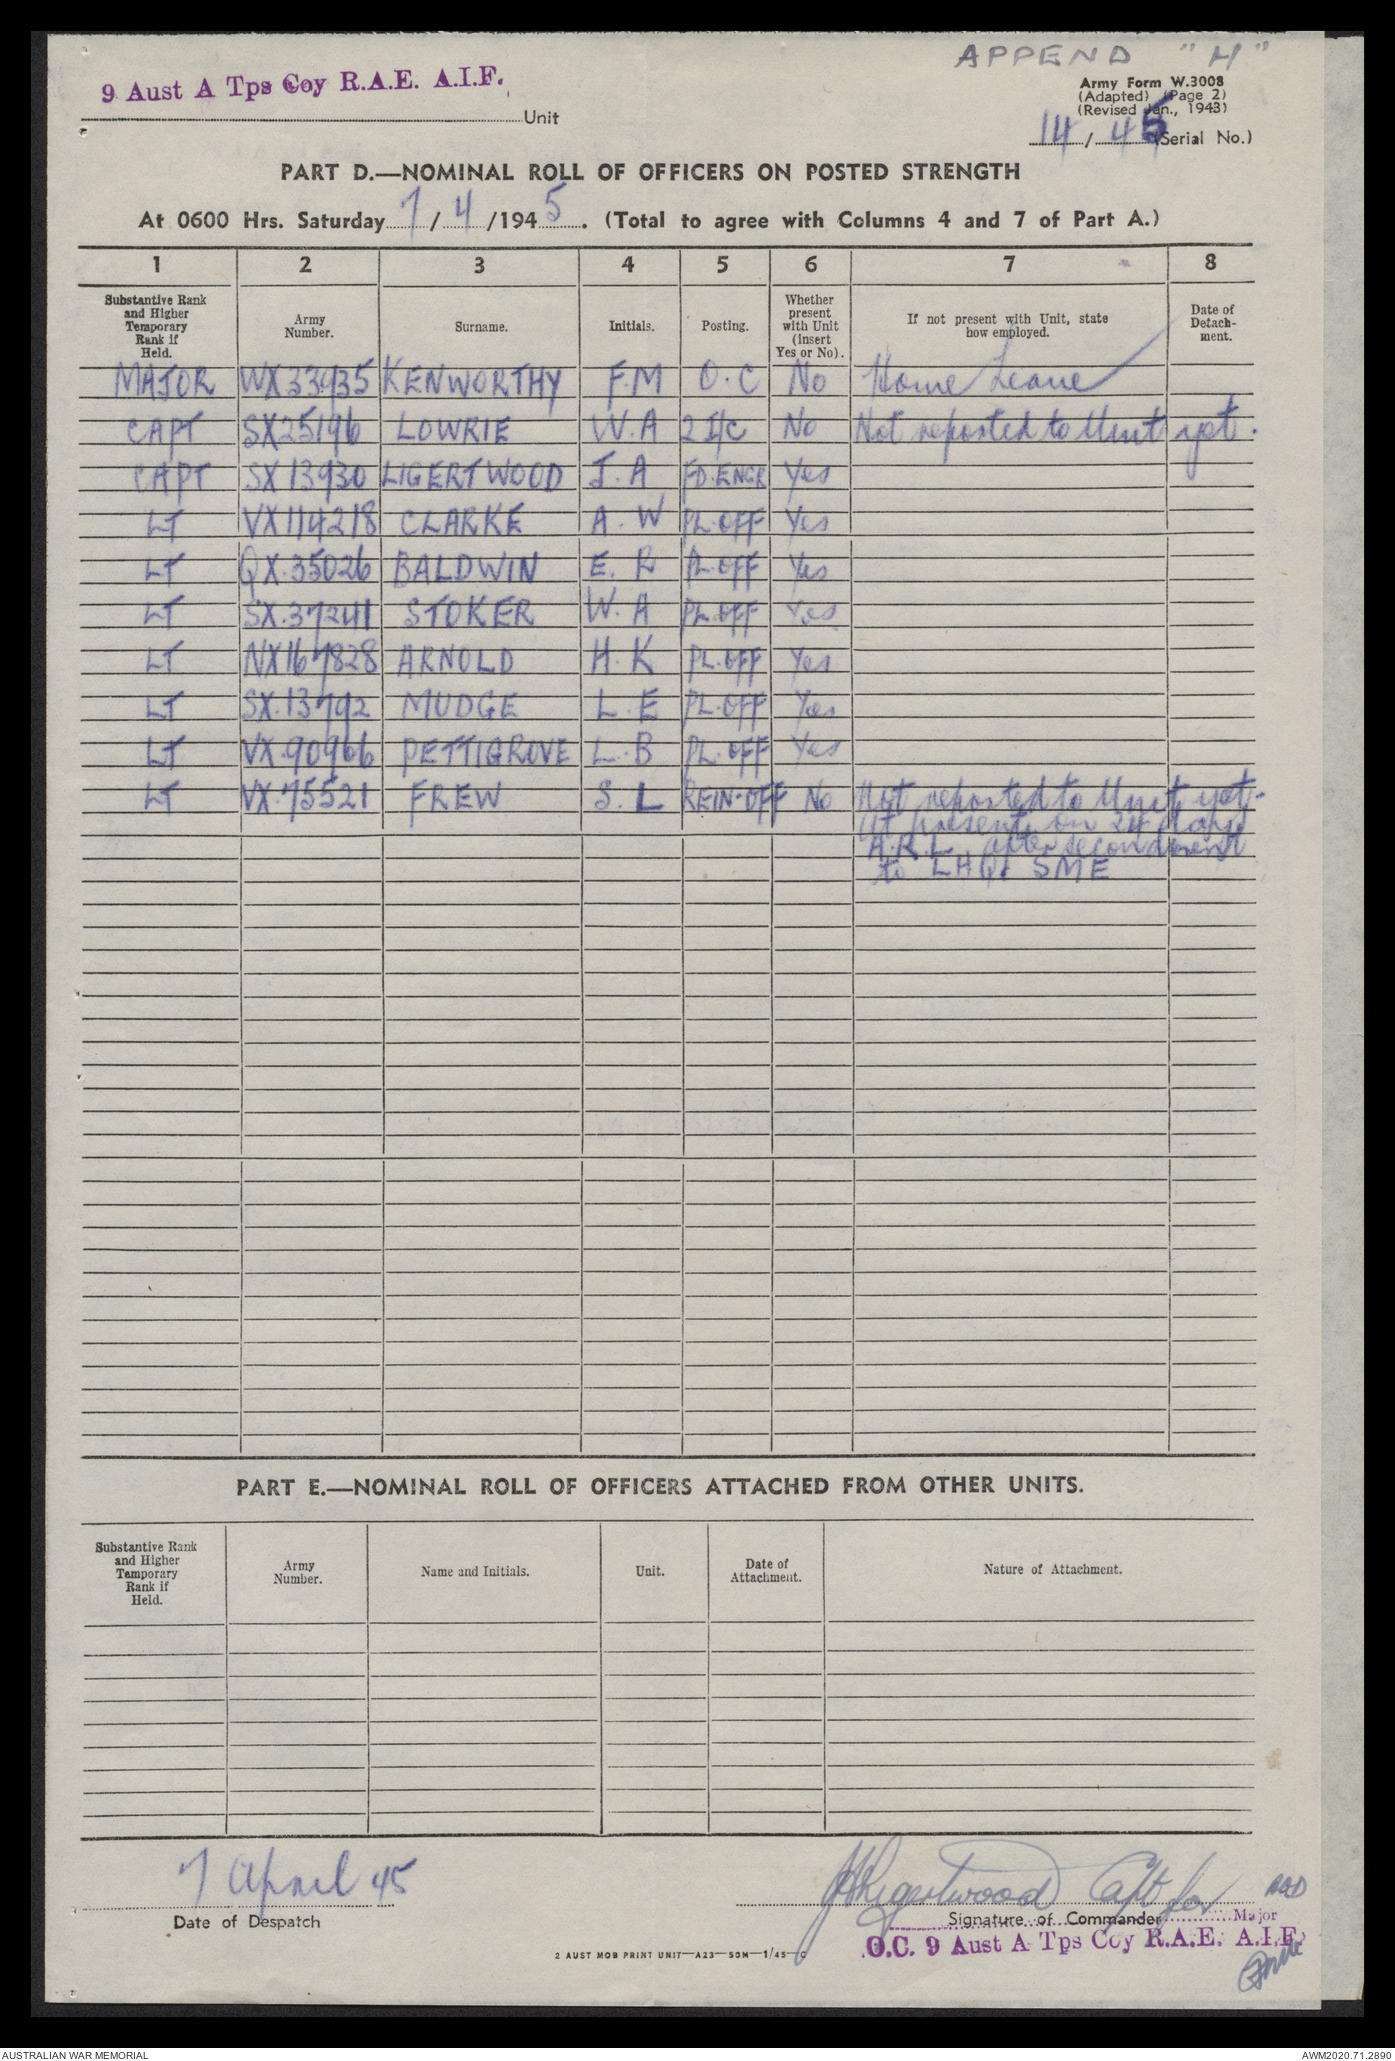 APPEND "H"
9 Aust A Tps Coy R.A.E. A.I.F.
Unit
Army Form W.3008
(Adapted) (Page 2)
(Revised Jan., 1943)
14/45 (Serial No.)
PART D.—NOMINAL ROLL OF OFFICERS ON POSTED STRENGTH
At 0600 Hrs. Saturday 7/4/1945. (Total to agree with Columns 4 and 7 of Part A.)
1 2 3 4 5 6 7 8
Substantive Rank and Higher Temporary Rank if Held. Army Number. Surname. Initials. Posting. Whether present with Unit (insert Yes or No). If not present with Unit, state how employed. Date of Detachment.
MAJOR WX33935 KENWORTHY F.M O.C No Home Leave
CAPT SX25196 LOWRIE W.A 2 I/C No Not reported to Unit yet.
CAPT SX13930 LIGERTWOOD J.A FD.ENGR Yes
LT VX114218 CLARKE A.W PL.OFF Yes
LT QX.35026 BALDWIN E.R PL.OFF Yes
LT SX.37241 STOKER W.A PL.OFF Yes
LT NX167828 ARNOLD H.K PL.OFF Yes
LT SX.13792 MUDGE L.E PL.OFF Yes
LT VX.90966 PETTIGROVE L.B PL.OFF Yes
LT VX.75521 FREW S.L REIN-OFF No Not reported to Unit yet-
At present on 24 days
A.R.L. after secondment
to LHQ SME
PART E.—NOMINAL ROLL OF OFFICERS ATTACHED FROM OTHER UNITS.
Substantive Rank and Higher Temporary Rank if Held. Army Number. Name and Initials. Unit. Date of Attachment. Nature of Attachment.
7 April 45
Date of Despatch
JALigertwood Capt for
Signature of Commander Major
O.C. 9 Aust A Tps Coy R.A.E. A.I.F.
2 AUST MOB PRINT UNIT—A23—50M—1/45—C
AUSTRALIAN WAR MEMORIAL
AWM2020.71.2890